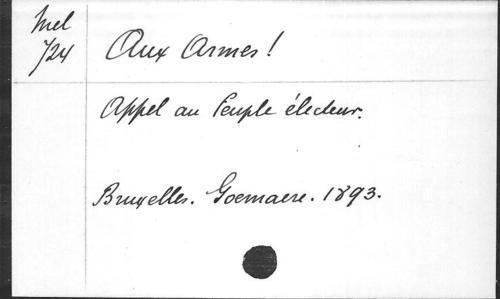 Mel
724
Aux Armes!
Appel au Peuple électeur.
Bruxelles. Goemaere. 1893.